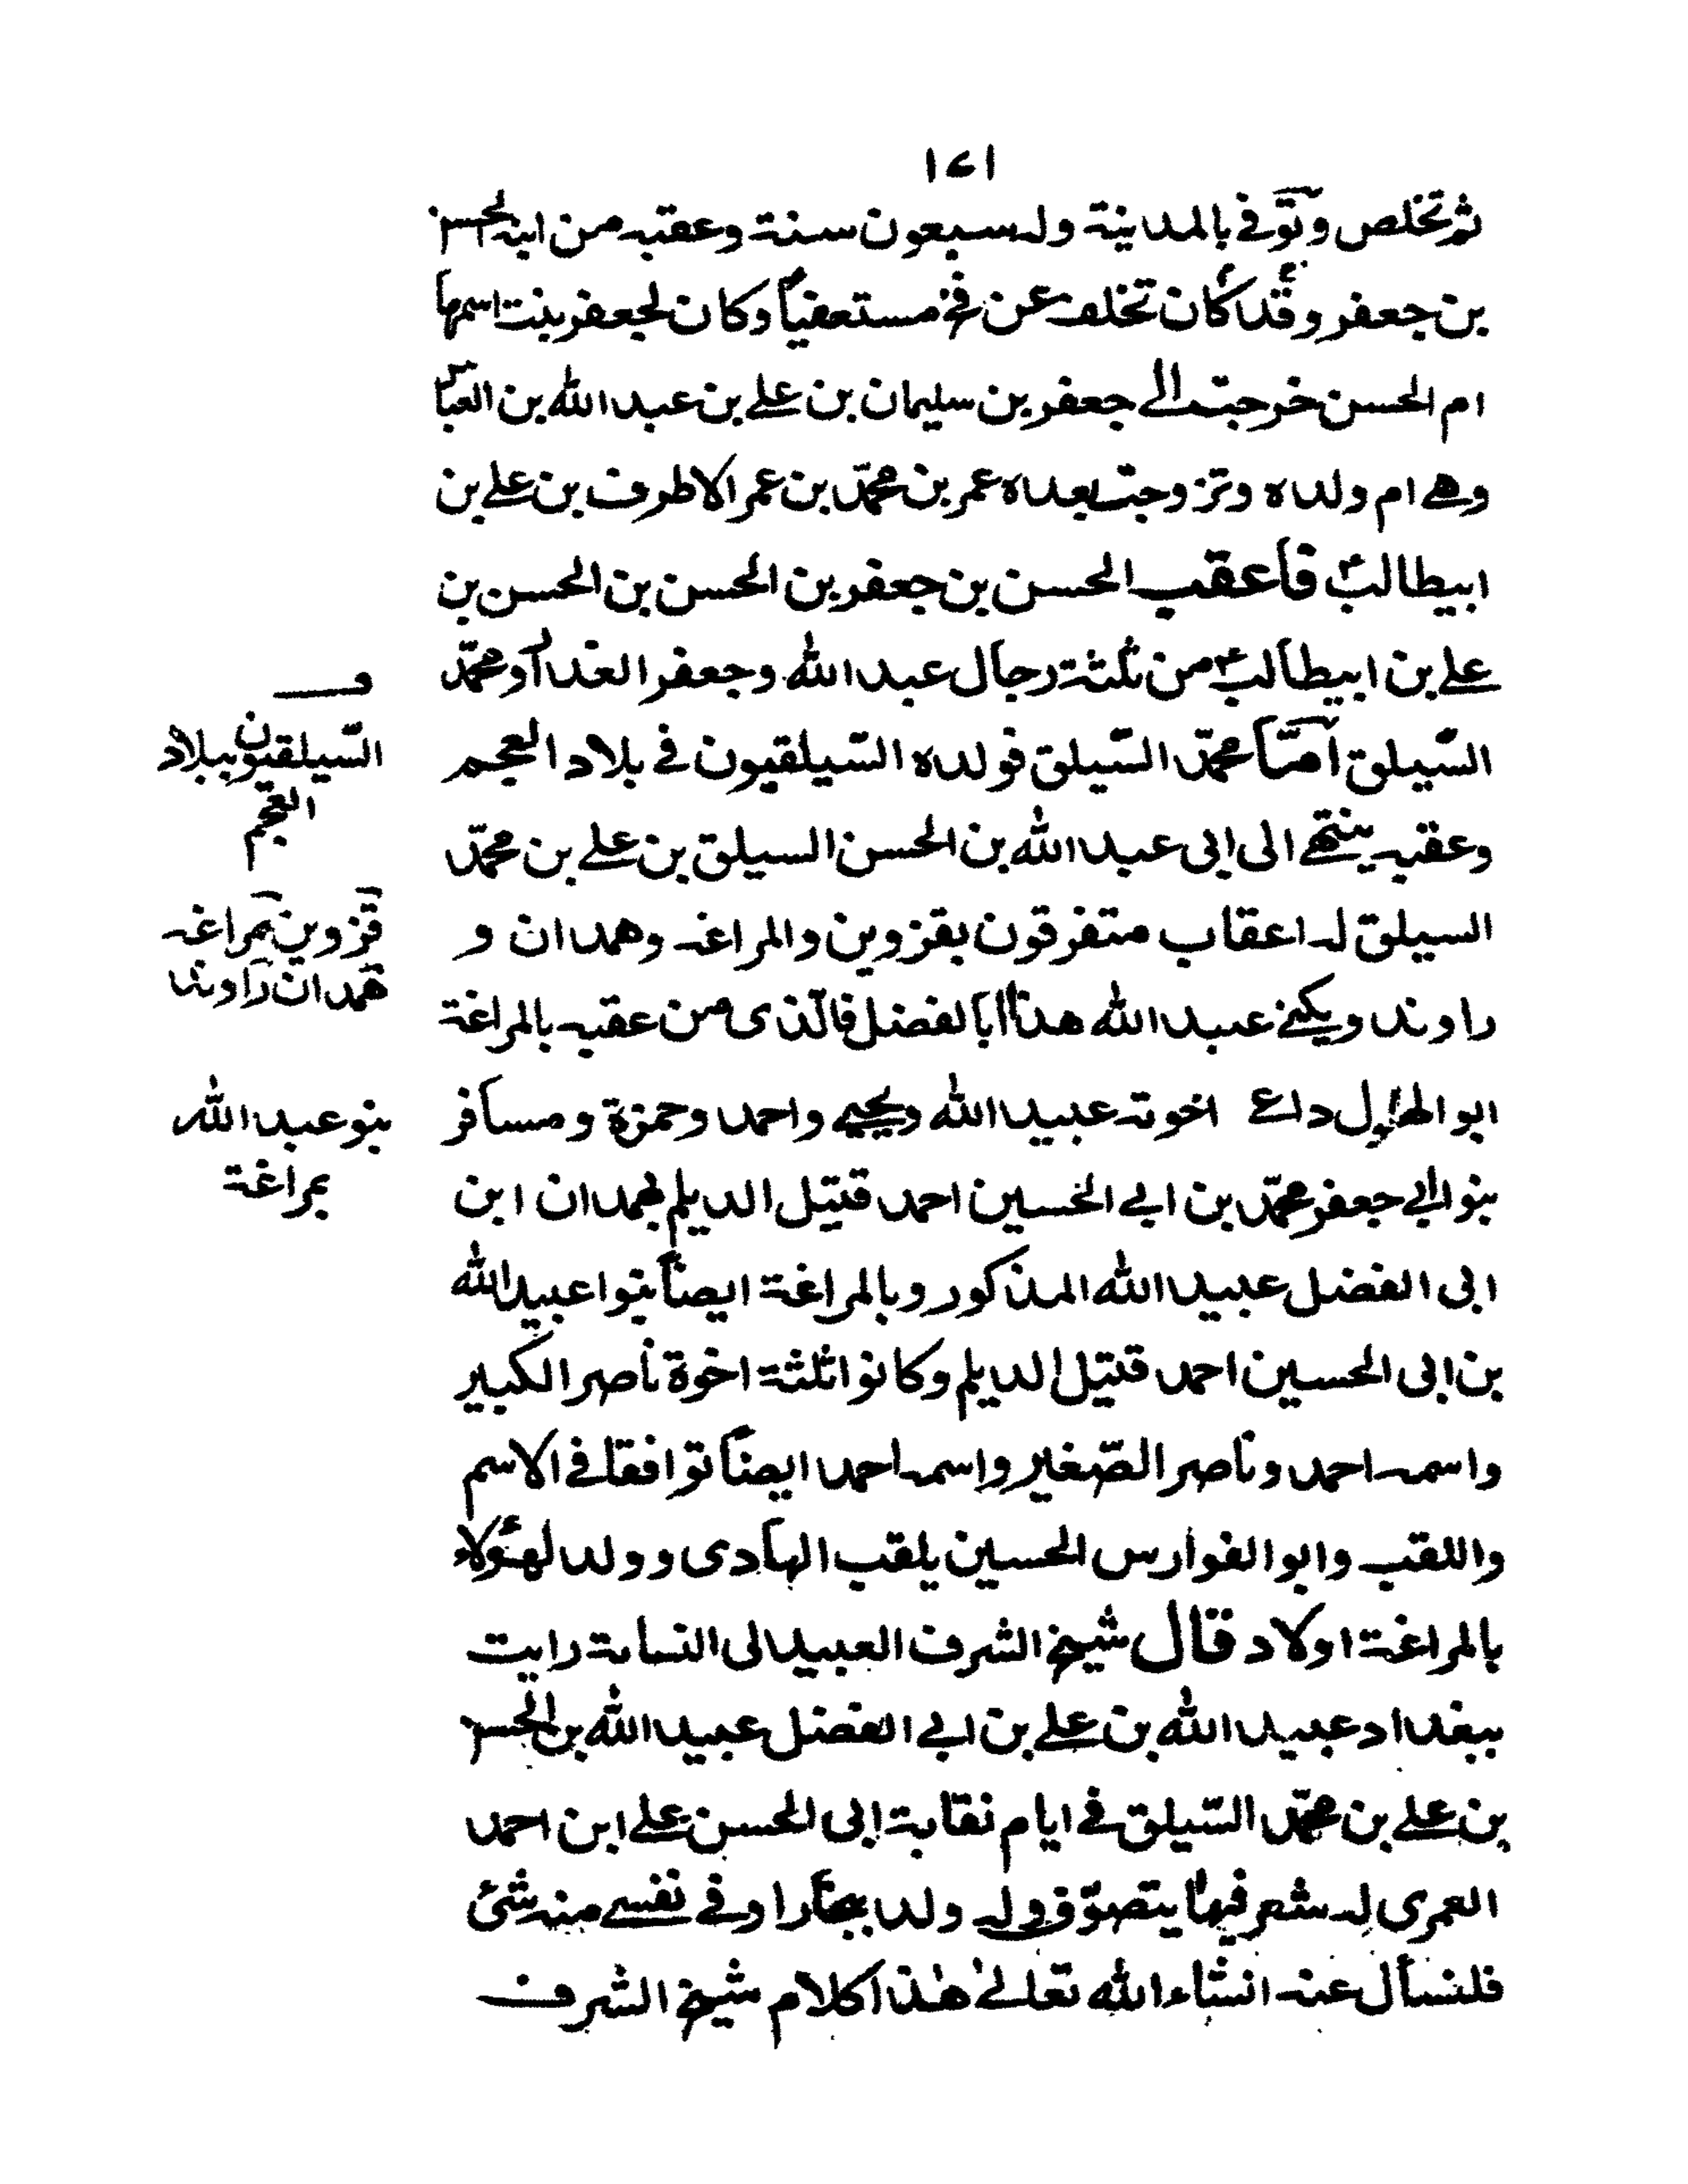 ١٤١
ثم تخلص وتوفى بالمدينة وله سبعون سنة وعقبه من ابنه الحسن
بن جعفر وقد كان تخلف عن فخ مستعفيا وكان لجعفر بنت اسمها
ام الحسن خرجت الى جعفر بن سليمان بن علي بن عبد الله بن العباس
وهي ام ولده وتزوجت بعده عمر بن محمّد بن عمر الاطرف بن علي بن
ابيطالب ع فاعقب الحسن بن جعفر بن الحسن بن الحسن بن
علي بن ابيطالب ع من ثلثة رجال عبد الله وجعفر الغدار ومحمّد
السّيلق امّا محمّد السّيلق فولده السّيلقيون في بلاد العجم
وعقبه ينتهي الى ابى عبد الله بن الحسن السيلق بن علي بن محمّد
السيلق له اعقاب متفرقون بقزوين والمراغه وهمدان و
راوند ويكنى عبيد الله هذا ابا الفضل فالّذى من عقبه بالمراغة
ابو الهول داعى اخوته عبيد الله ويحيى واحمد وحمزة ومسافر
بنو ابي جعفر محمّد بن ابي الحسين احمد قتيل الديلم بهمدان ابن
ابى الفضل عبيد الله المذكور وبالمراغة ايضاً بنوا عبيد الله
بن ابى الحسين احمد قتيل الديلم وكانوا ثلثة اخوة ناصر الكبير
واسمه احمد وناصر الصّغير واسمه احمد ايضاً توافقا في الاسم
واللقب وابو الفوارس الحسين يلقب الهادى وولد لهؤلاء
بالمراغة اولاد قال شيخ الشرف العبيدلى النسابة رايت
ببغداد عبيد الله بن علي بن ابي الفضل عبيد الله بن الحسن
بن علي بن محمّد السّيلق في ايام نقابة ابى الحسن علي ابن احمد
العمرى له شعر فيها يتصوّف وله ولد ببخارا وفي نفسي منه شئ
فلنسأل عنه انشاء الله تعالى هذا كلام شيخ الشرف
السّيلقيون ببلاد
العجم
قزوين مراغه
همدان راوند
بنو عبد الله
بمراغة